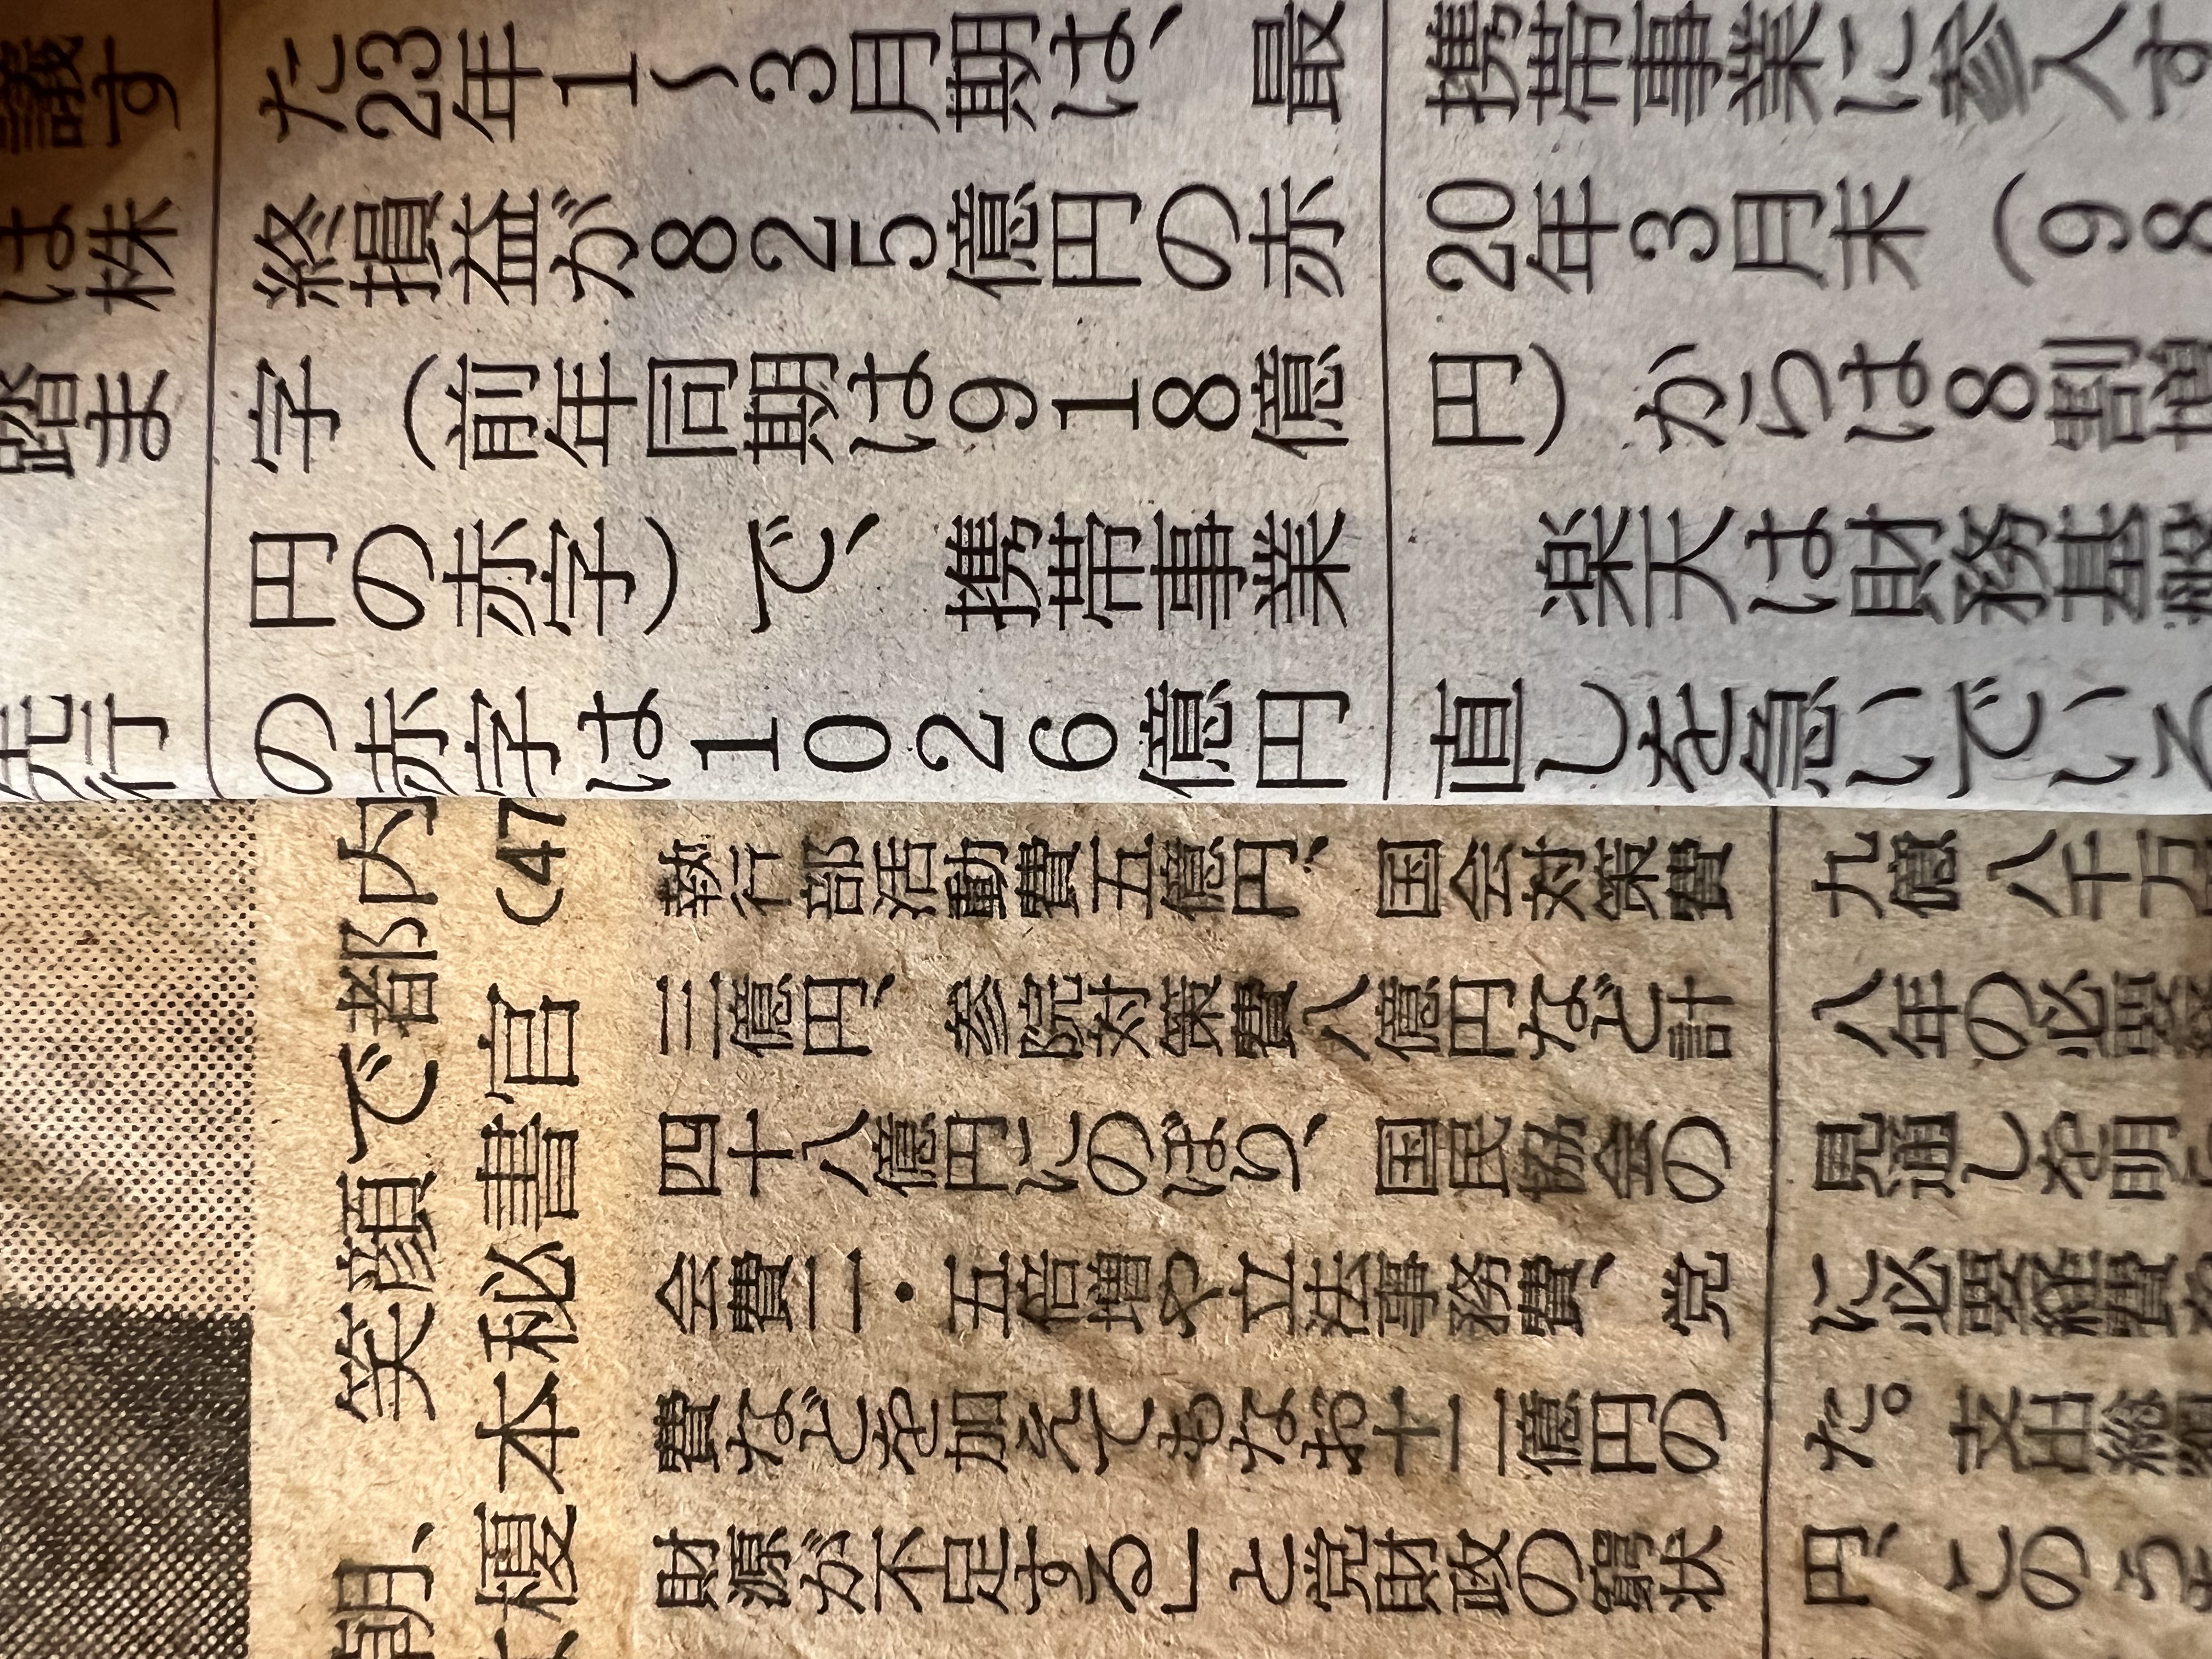 議す
は株
踏ま
先行
た23年1～3月期は、最
終損益が825億円の赤
字（前年同期は918億
円の赤字）で、携帯事業
の赤字は1026億円
携帯事業に参入す
20年3月末（98
円）からは8割増
楽天は財務基盤
直しを急いでいる
朝、　笑顔で都内
榎本秘書官（47
執行部活動費五億円、国会対策費
三億円、参院対策費八億円など計
四十八億円にのぼり、国民協会の
会費二・五倍増や立法事務費、党
費などを加えてもなお十二億円の
財源が不足する」と党財政の窮状
九億八千万
八年の必要
見通しを明
に必要経費
た。支出総額
円、このう